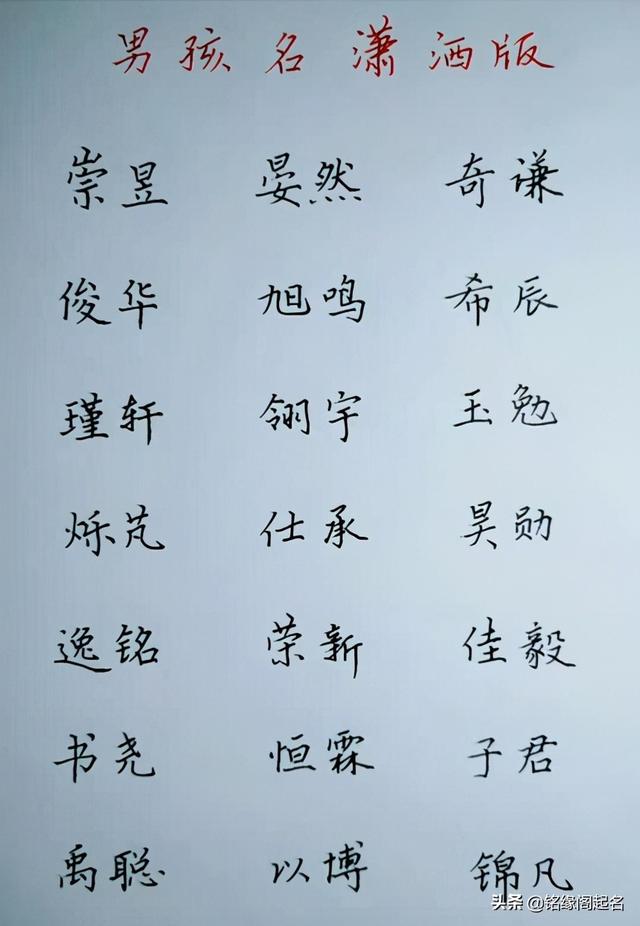 男孩名潇洒版
崇昱 晏然 奇谦
俊华 旭鸣 希辰
瑾轩 翎宇 玉勉
烁芃 仕承 昊勋
逸铭 荣新 佳毅
书尧 恒霖 子君
禹聪 以博 锦凡
头条 @铭缘阁起名